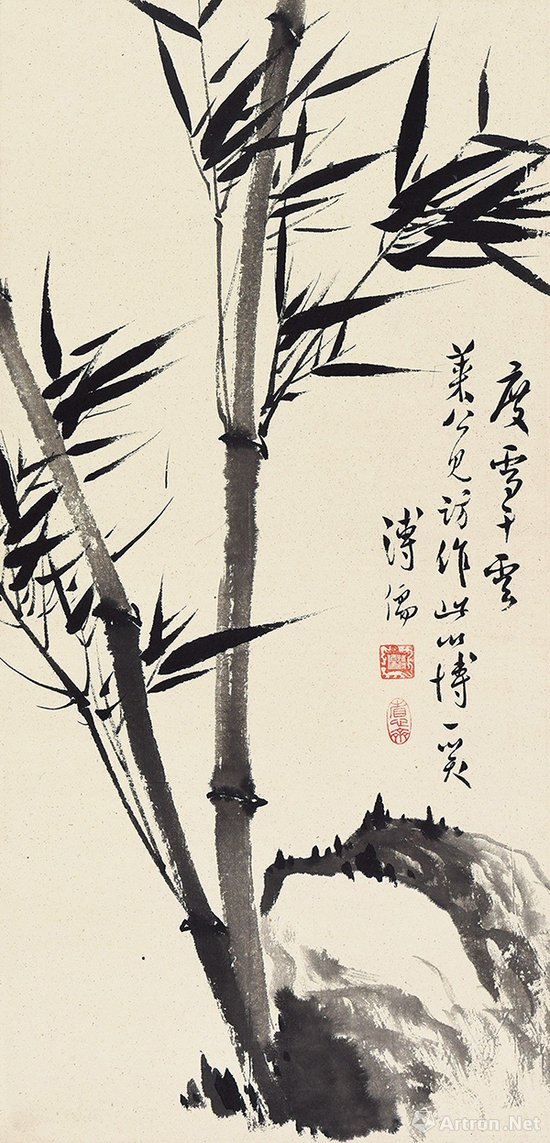 度雪干雲
萊公見訪作此以博一笑
溥儒
Artron.Net